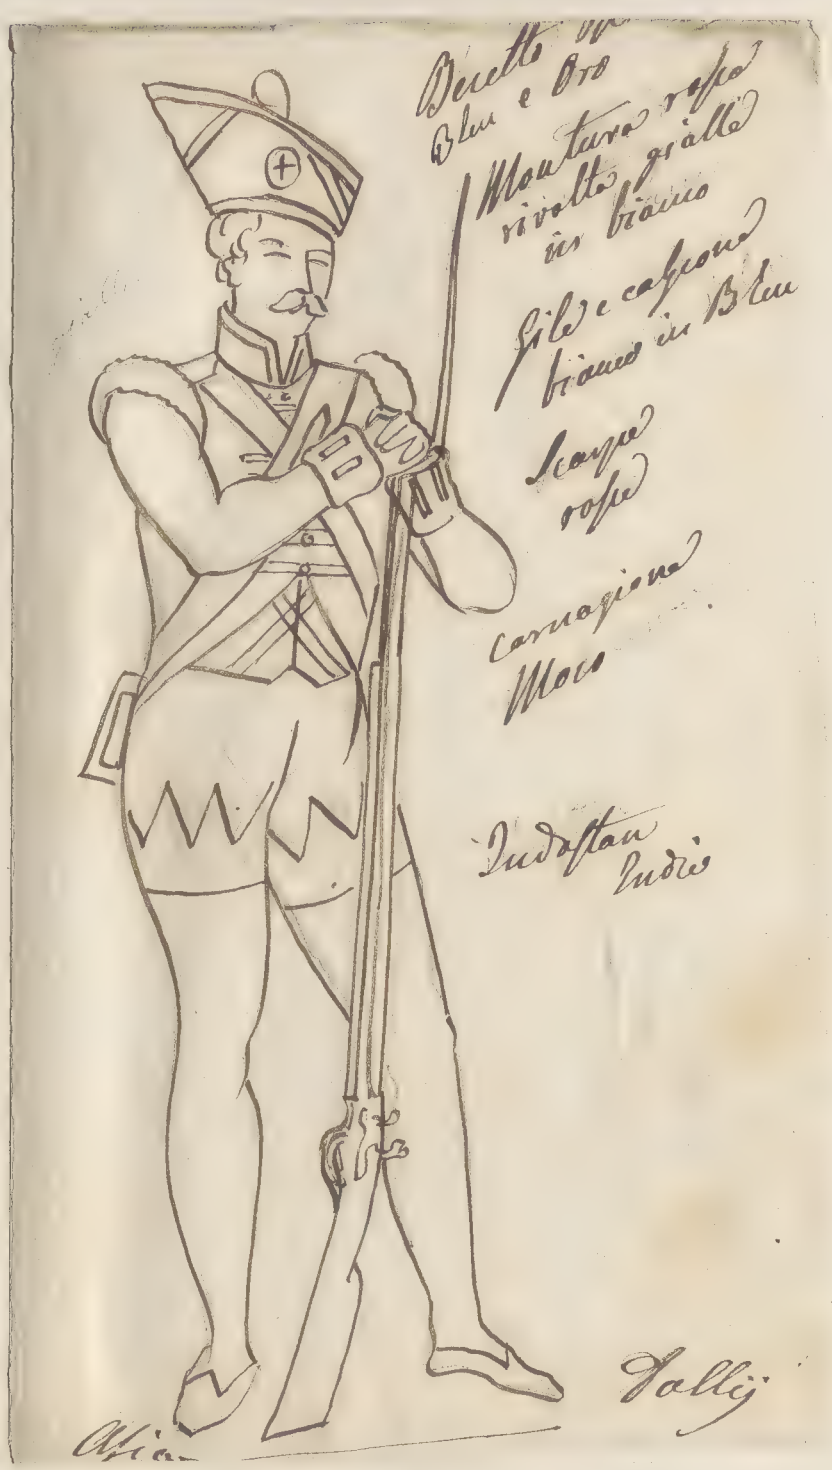 Beretto
Bleu e Oro
Montura rossa
rivolta gialle
in bianco
Gilè e calzone
bianco in Bleu
Scarpe
rosse
carnagione
Moro
Indostan
Indie
Asia